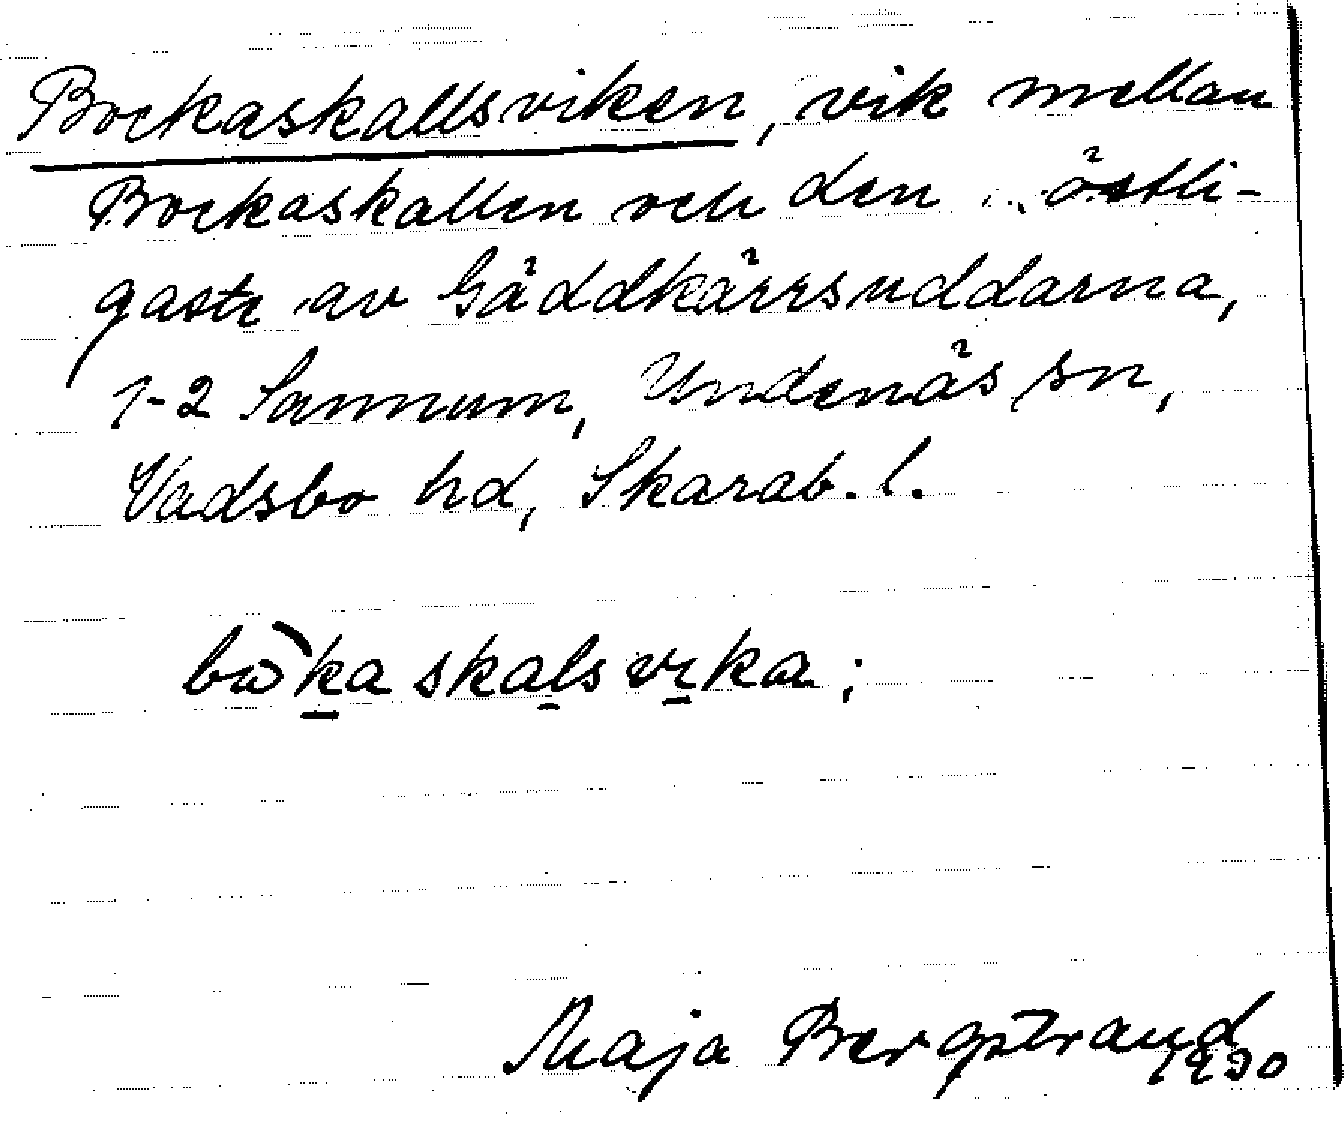 Bockaskallsviken, vik mellan
Bockaskallen och den östli-
gaste av Gäddkärrsuddarna,
1-2 Sannum, Undenäs sn,
Vadsbo hd, Skarab. l.
bωka skalsvika;
Maja Bergstrand
1930